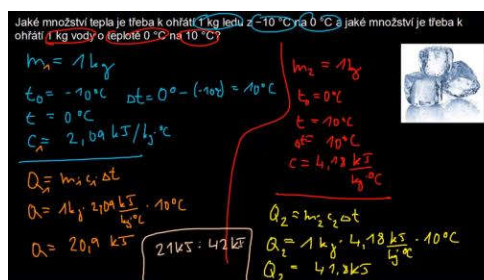 Jaké množství tepla je třeba k ohřátí 1 kg ledu z −10 °C na 0 °C a jaké množství je třeba k
ohřátí 1 kg vody o teplotě 0 °C na 10 °C?
m₁ = 1 kg
t₀ = -10°C Δt = 0° - (-10°C) = 10°C
t = 0°C
c₁ = 2,09 kJ/kg·°C
Q₁ = m₁c₁Δt
Q = 1kg · 2,09 kJ/kg·°C · 10°C
Q = 20,9 kJ
21 kJ : 42 kJ
m₂ = 1kg
t₀ = 0°C
t = 10°C
Δt = 10°C
c = 4,18 kJ/kg·°C
Q₂ = m₂c₂Δt
Q₂ = 1 kg · 4,18 kJ/kg·°C · 10°C
Q₂ = 41,8 kJ